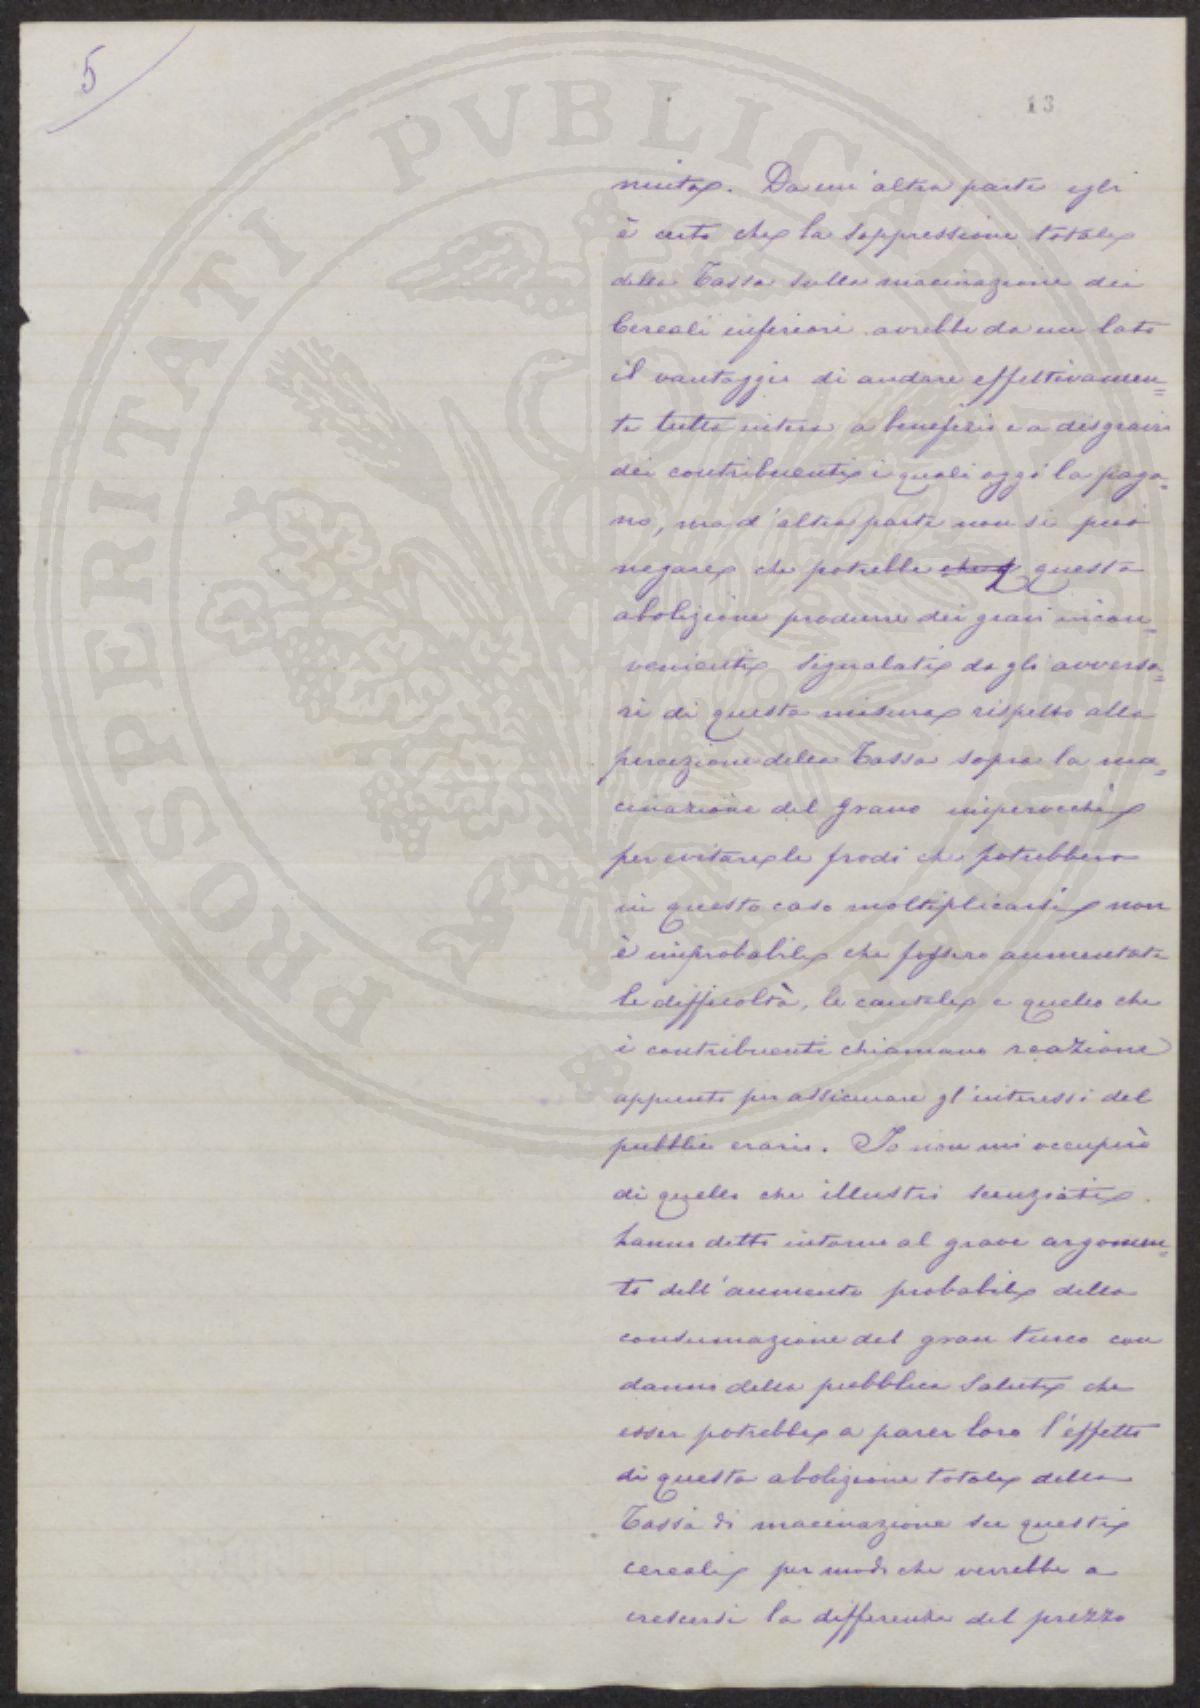 5
13
nuita. Da un'altra parte egli
è certo che la soppressione totale
della Tassa sulla macinazione dei
Cereali inferiori avrebbe da un lato
il vantaggio di andare effettivamen=
te tutta intera a benefizio e a disgravio
dei contribuenti i quali oggi la paga=
no, ma d'altra parte non si può
negare che potrebbe che questa
abolizione produrre dei gravi incon=
venienti segnalati dagli avversa=
ri di questa misura rispetto alla
percezione della Tassa sopra la ma=
cinazione del grano imperocchè
per evitare le frodi che potrebbero
in questo caso moltiplicarsi non
è improbabile che fossero aumentate
le difficoltà, le cautele e quello che
i contribuenti chiamano reazione
appunto per assicurare gl'interessi del
pubblico erario. Io non mi occuperò
di quello che illustri scenziati
hanno detto intorno al grave argomen=
to dell'aumento probabile della
consumazione del gran turco con
danno della pubblica salute che
esser potrebbe a parer loro l'effetto
di questa abolizione totale della
Tassa di macinazione su questi
cereali per modo che verrebbe a
crescersi la differenza del prezzo
PROSPERITATI PVBLICAE